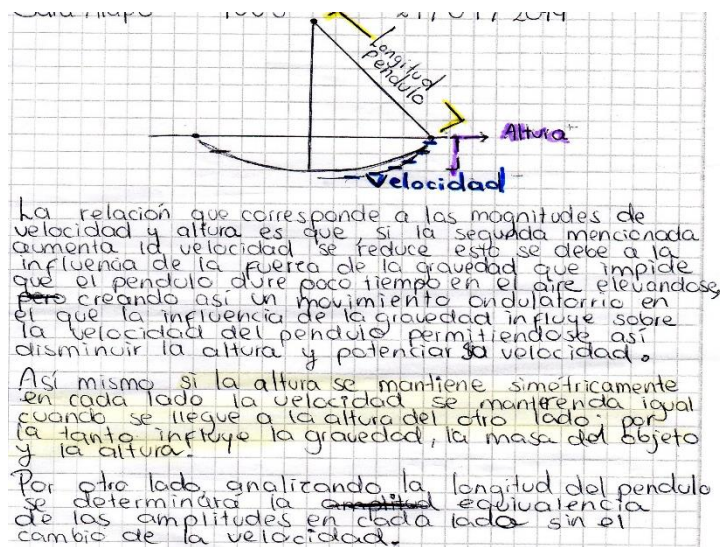 Longitud
pendulo
Altura
Velocidad
La relación que corresponde a las magnitudes de
velocidad y altura es que si la segunda mencionada
aumenta la velocidad se reduce esto se debe a la
influencia de la fuerza de la gravedad que impide
que el pendulo dure poco tiempo en el aire elevandose,
pero creando así un movimiento ondulatorrio en
el que la influencia de la gravedad influye sobre
la velocidad del pendulo permitiendose así
disminuir la altura y potenciar su velocidad.
Así mismo si la altura se mantiene simétricamente
en cada lado la velocidad se mantenda igual
cuando se llegue a la altura del otro lado; por
la tanto influye la gravedad, la masa del objeto
y la altura.
Por otro lado, analizando la longitud del pendulo
se determinara la amplitud equivalencia
de las amplitudes en cada lado sin el
cambio de la velocidad.